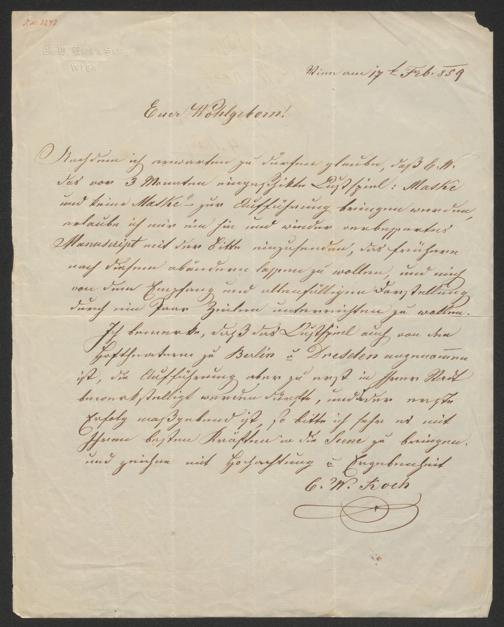 Wien am 17t Feb. 859
Euer Wohlgeborn!
Nachdem ich erwarten zu dürfen glaube, daß E. W.
das vor 3 Monaten eingeschikte Lustspiel: Maske
und keine Maske zur Aufführung bringen werden,
erlaube ich mir ein hin und wieder verbessertes
Manuscript mit der Bitte einzusenden, das frühere
nach diesem abändern lassen zu wollen, und mich
von dem Empfang und allenfälligen Darstellung
durch ein Paar Zeilen unterrichten zu wollen.
Ich bemerke, daß das Lustspiel auch von den
Hoftheatern zu Berlin u Dresden angenommen
ist, die Aufführung aber zu erst in Ihrer Stadt
bewerkstelligt werden dürfte, und der erste
Erfolg maßgebend ist, so bitte ich sehr es mit
Ihren besten Kräften in die Scene zu bringen.
und zeichne mit Hochachtung u Ergebenheit
C. W. Koch